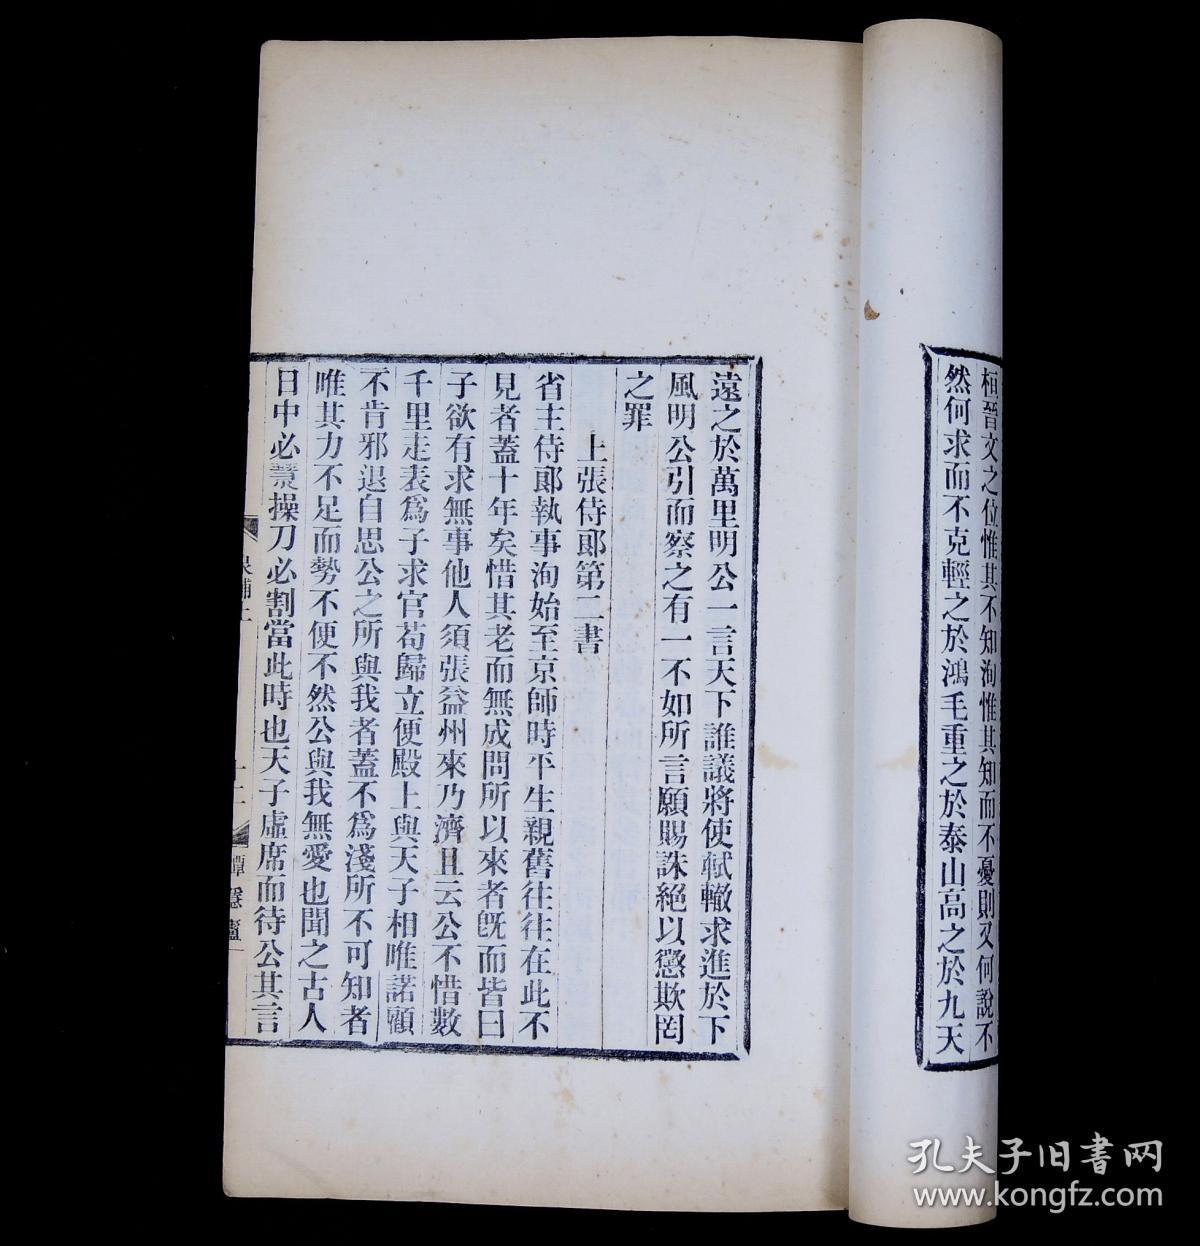 桓晉文之位惟其不知洵惟其知而不憂則又何說不
然何求而不克輕之於鴻毛重之於泰山高之於九天
遠之於萬里明公一言天下誰議將使軾轍求進於下
風明公引而察之有一不如所言願賜誅絕以懲欺罔
之罪
上張侍郎第二書
省主侍郎執事洵始至京師時平生親舊往往在此不
見者蓋十年矣惜其老而無成問所以來者旣而皆曰
子欲有求無事他人須張益州來乃濟且云公不惜數
千里走表爲子求官苟歸立便殿上與天子相唯諾顧
不肯邪退自思公之所與我者蓋不爲淺所不可知者
唯其力不足而勢不便不然公與我無愛也聞之古人
日中必熭操刀必割當此時也天子虛席而待公其言
十二
孔夫子旧书网
www.kongfz.com